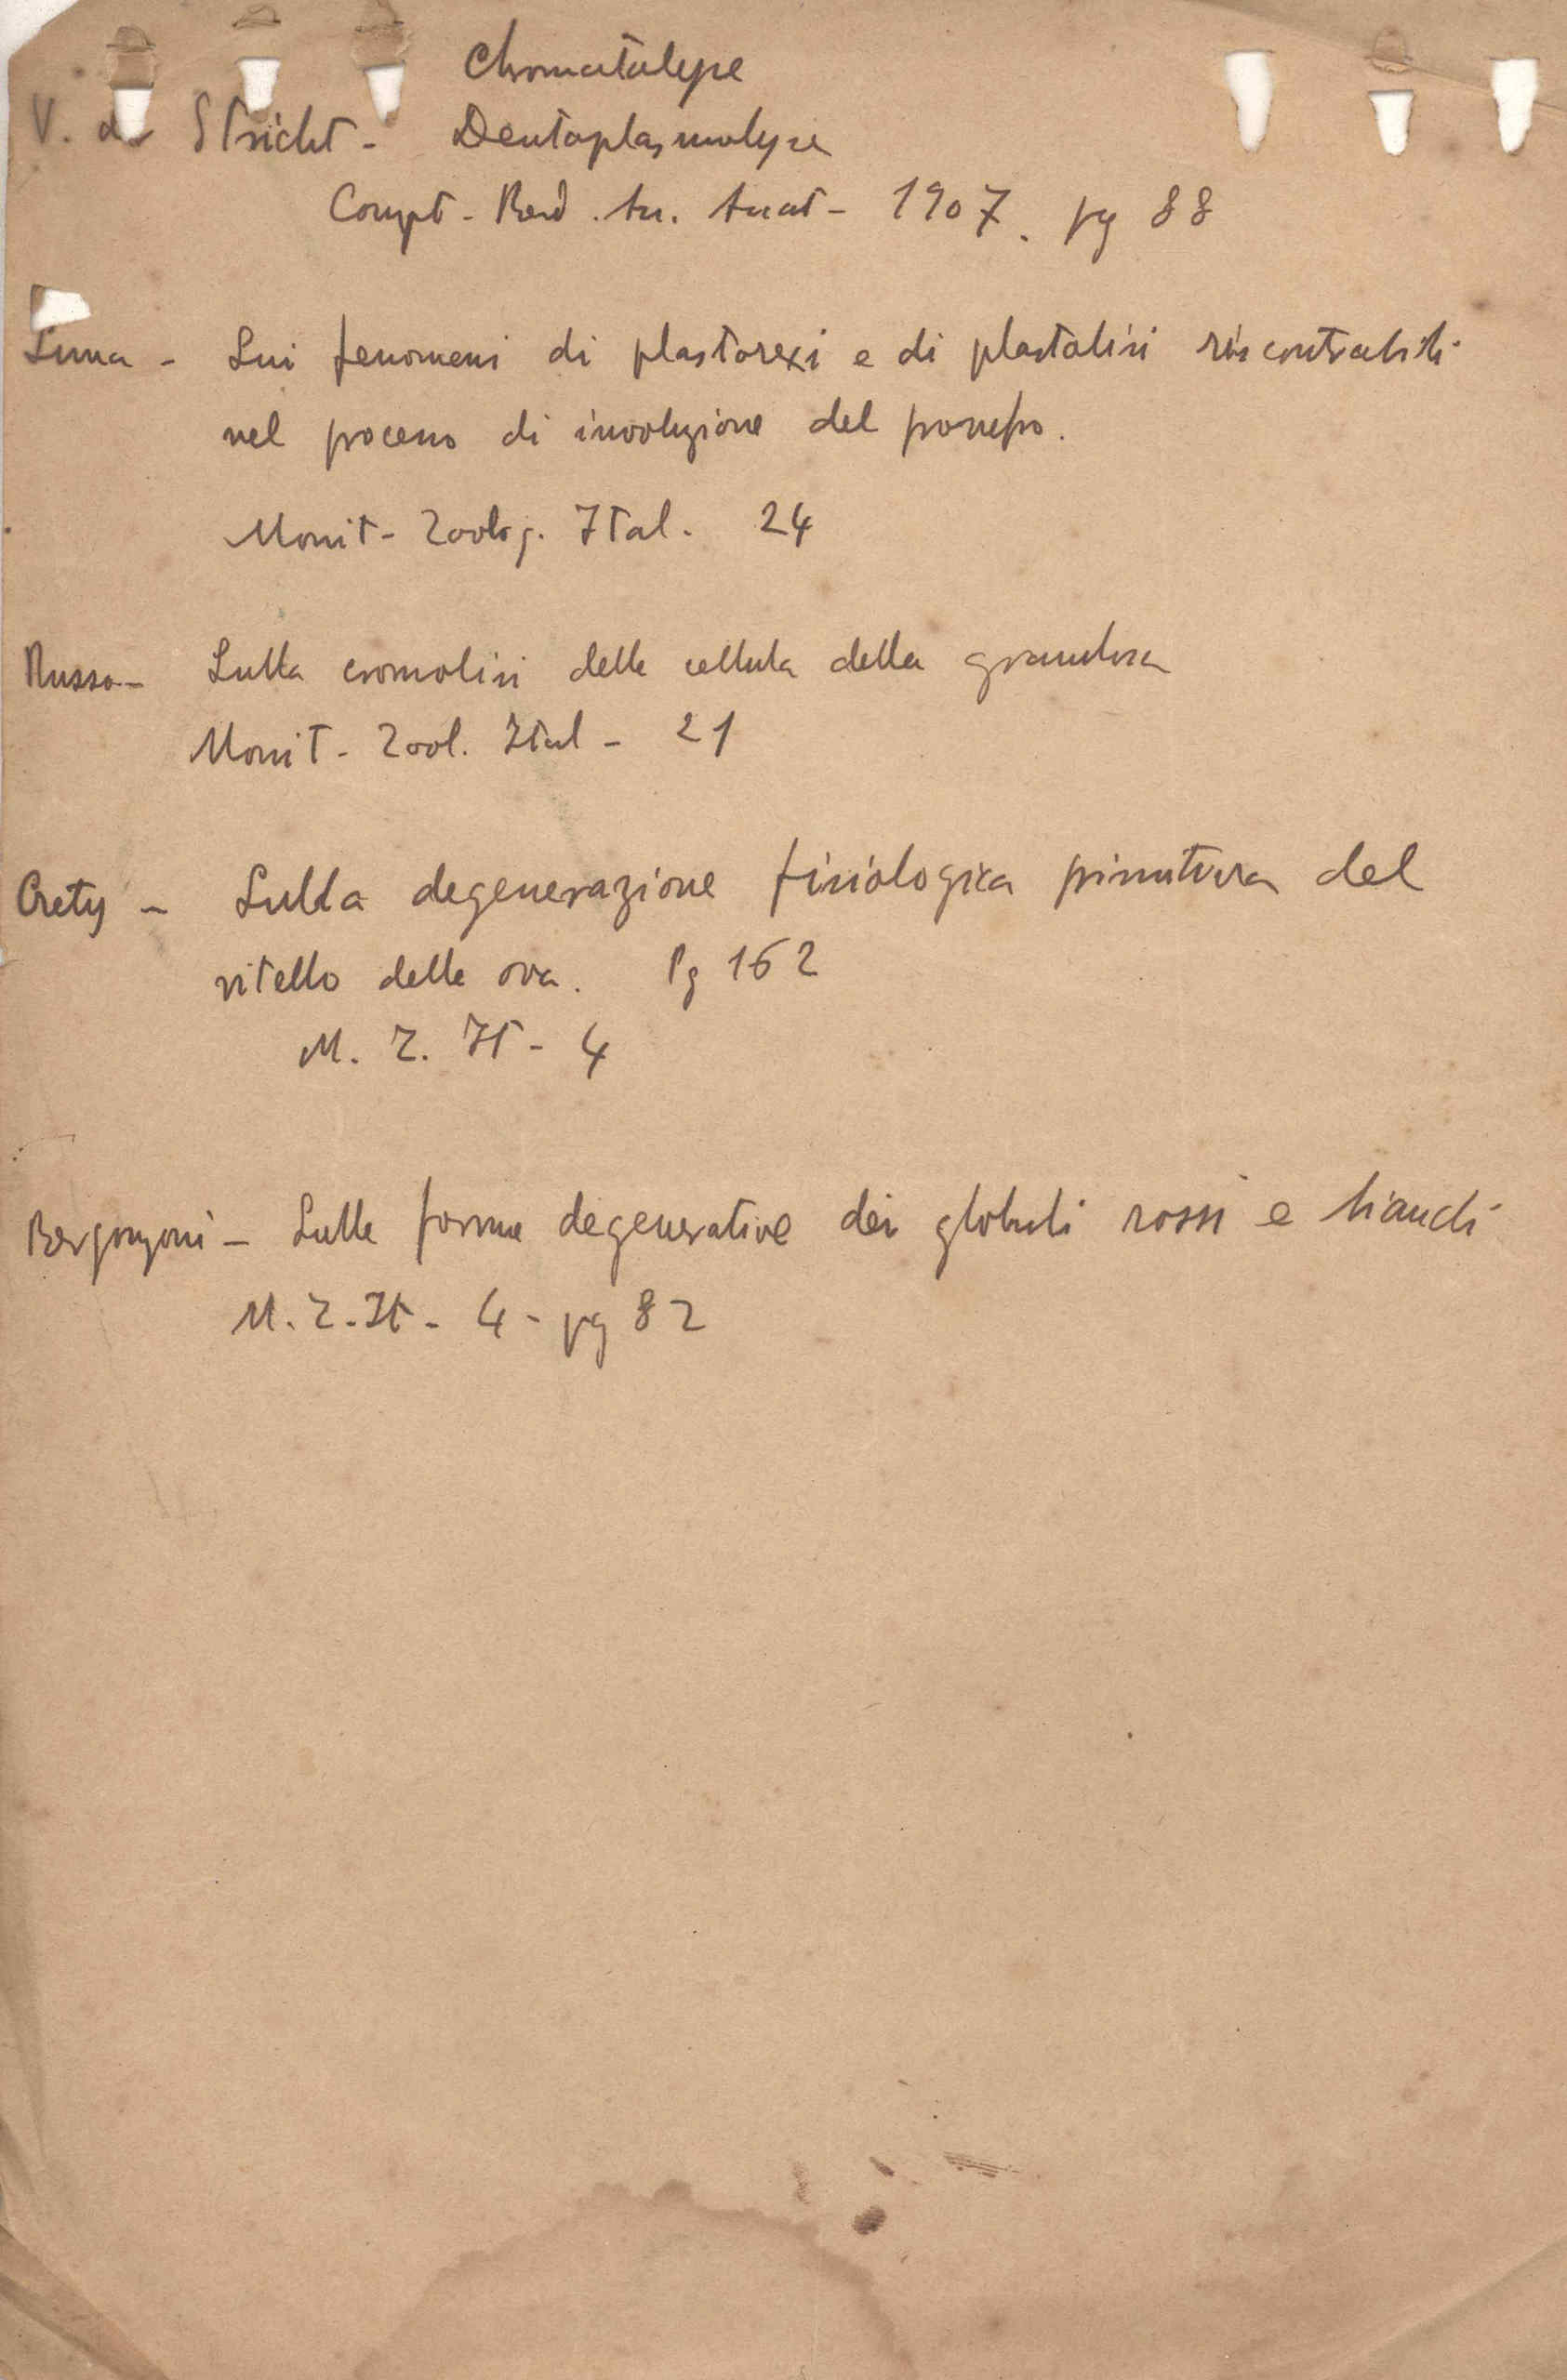 Chromatolyse
V. de Stricht - Deutoplasmolyse
Compt - Rend . An. Anat - 1907. pg 88
Luna - Sui fenomeni di plastorexi e di plastolisi riscontrabili
nel processo di involuzione del
Monit - Zoolog. Ital. 24
Russo - Sulla cromolisi delle cellula della granulosa
Monit - Zool. Ital - 21
Crety - Sulla degenerazione fisiologica primitiva del
vitello delle ova. Pg 162
M. Z. It - 4
Bergonzoni - Sulle forme degenerative dei globuli rossi e bianchi
M. Z. It - 4 - pg 82